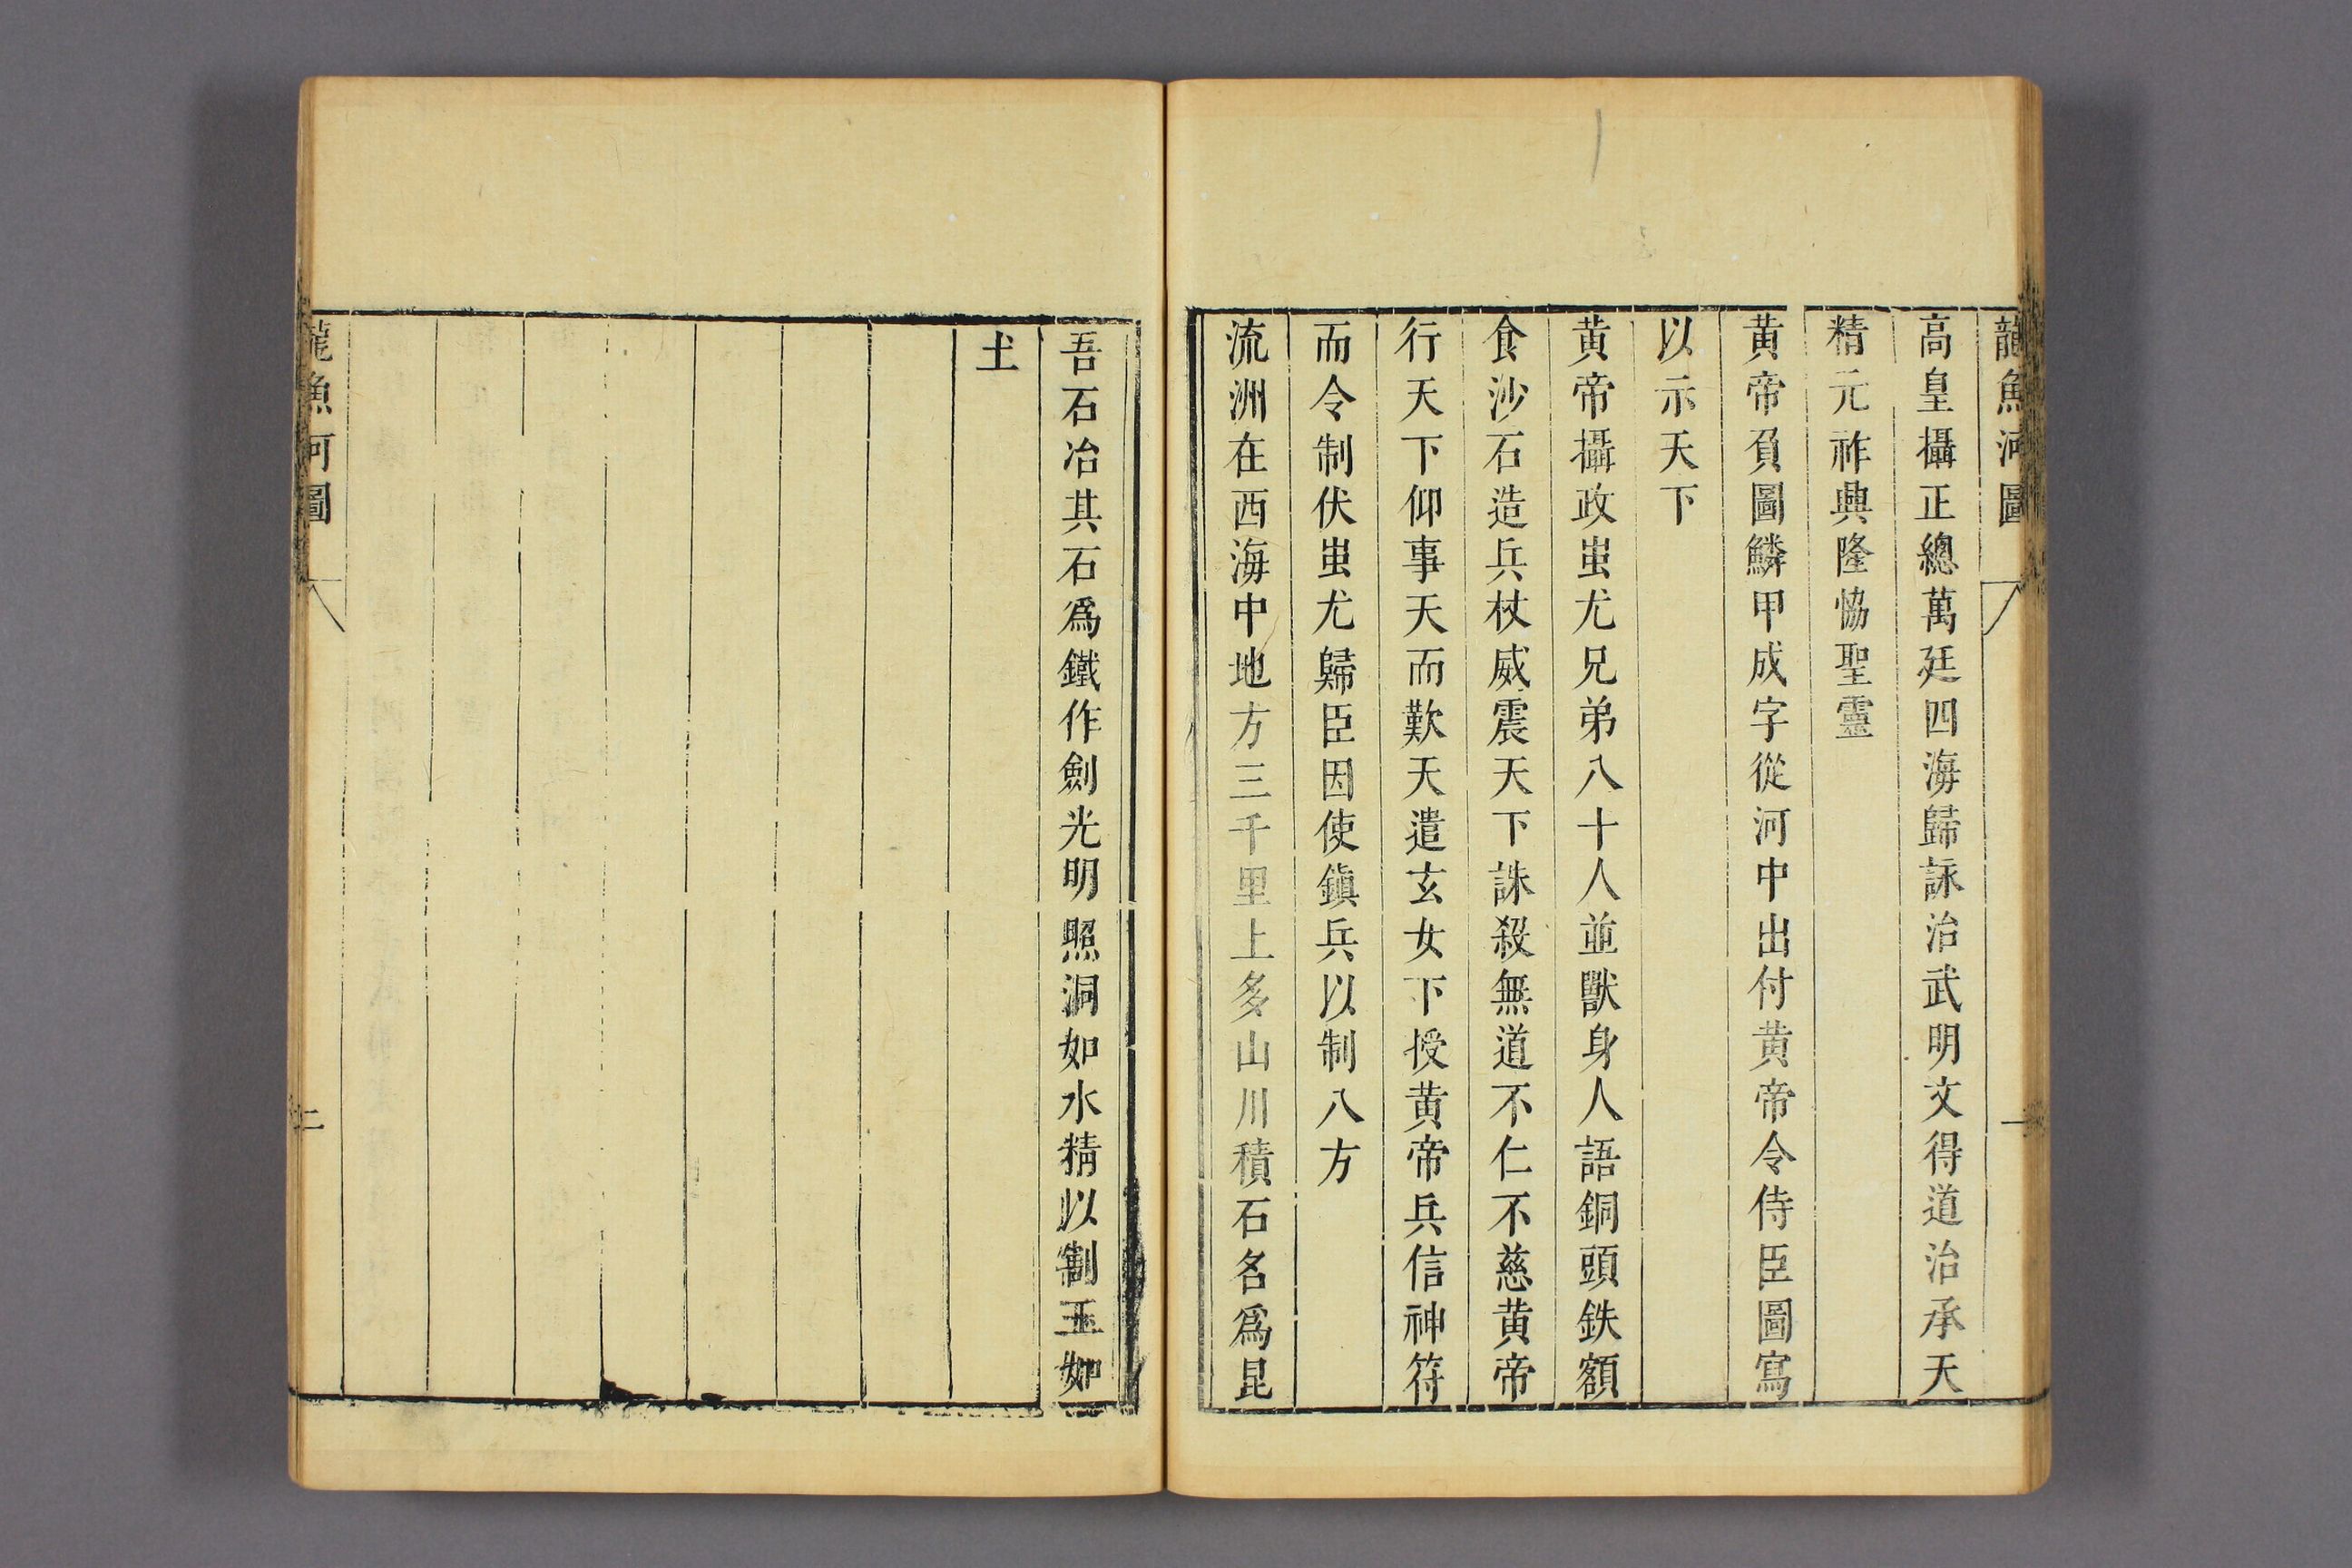 龍魚河圖
一
高皇攝正總萬廷四海歸詠治武明文得道治承天
精元祚興隆恊聖靈
黃帝負圖鱗甲成字從河中出付黃帝令侍臣圖寫
以示天下
黃帝攝政蚩尤兄弟八十人並獸身人語銅頭鉄額
食沙石造兵杖威震天下誅殺無道不仁不慈黃帝
行天下仰事天而歎天遣玄女下授黃帝兵信神符
而令制伏蚩尤歸臣因使鎮兵以制八方
流洲在西海中地方三千里上多山川積石名爲昆
吾石冶其石爲鐵作劍光明照洞如水精以割玉如
土
龍魚河圖
二